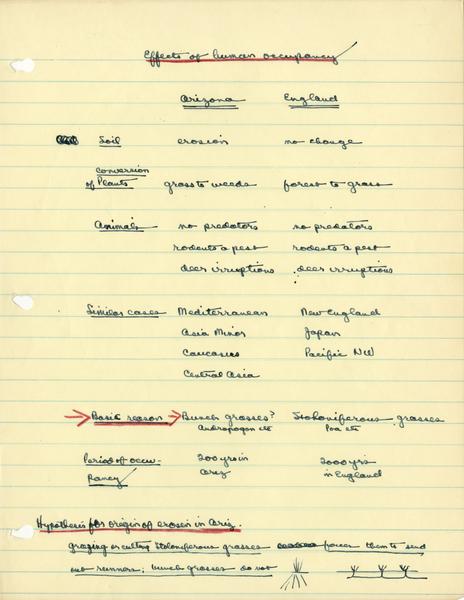 Effects of human occupancy
Arizona England
Soil erosion no change
Conversion
of Plants grass to weeds forest to grass
Animals no predators no predators
rodents a pest rodents a pest
deer irruptions deer irruptions
Similar cases Mediterranean New England
Asia Minor Japan
Caucasus Pacific NW
Central Asia
Basic reason Bunch grasses? Stoloniferous grasses
Andropogon etc Poa etc
Period of occu- 200 yrs in 2000 yrs
pancy Ariz in England
Hypothesis for origin of erosion in Ariz.
grazing or cutting stoloniferous grasses forces them to send
out runners; bunch grasses do not